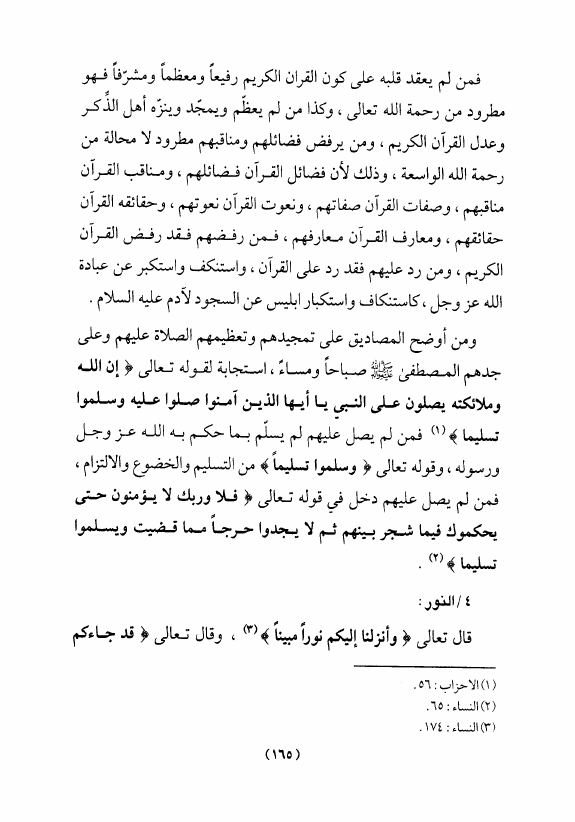 فمن لم يعقد قلبه على كون القران الكريم رفيعاً ومعظماً ومشرّفاً فهو
مطرود من رحمة الله تعالى ، وكذا من لم يعظّم ويمجّد وينزّه أهل الذِّكر
وعدل القرآن الكريم ، ومن يرفض فضائلهم ومناقبهم مطرود لا محالة من
رحمة الله الواسعة ، وذلك لأن فضائل القرآن فضائلهم ، ومناقب القرآن
مناقبهم ، وصفات القرآن صفاتهم ، ونعوت القرآن نعوتهم ، وحقائقه القرآن
حقائقهم ، ومعارف القرآن معارفهم ، فمن رفضهم فقد رفض القرآن
الكريم ، ومن رد عليهم فقد رد على القرآن ، واستنكف واستكبر عن عبادة
الله عز وجل ، كاستنكاف واستكبار ابليس عن السجود لآدم عليه السلام .
ومن أوضح المصاديق على تمجيدهم وتعظيمهم الصلاة عليهم وعلى
جدهم المصطفىٰ ﷺ صباحاً ومساءً ، استجابة لقوله تعالى ﴿ إن الله
وملائكته يصلون على النبي يا أيها الذين آمنوا صلوا عليه وسلموا
تسليما ﴾ (١) فمن لم يصل عليهم لم يسلّم بما حكم به الله عز وجل
ورسوله ، وقوله تعالى ﴿ وسلموا تسليماً ﴾ من التسليم والخضوع والالتزام ،
فمن لم يصل عليهم دخل في قوله تعالى ﴿ فلا وربك لا يؤمنون حتى
يحكموك فيما شجر بينهم ثم لا يجدوا حرجاً مما قضيت ويسلموا
تسليما ﴾ (٢) .
٤ /النور :
قال تعالى ﴿ وأنزلنا إليكم نوراً مبيناً ﴾ (٣) ، وقال تعالى ﴿ قد جاءكم
(١) الاحزاب : ٥٦ .
(٢) النساء : ٦٥ .
(٣) النساء : ١٧٤ .
(١٦٥)